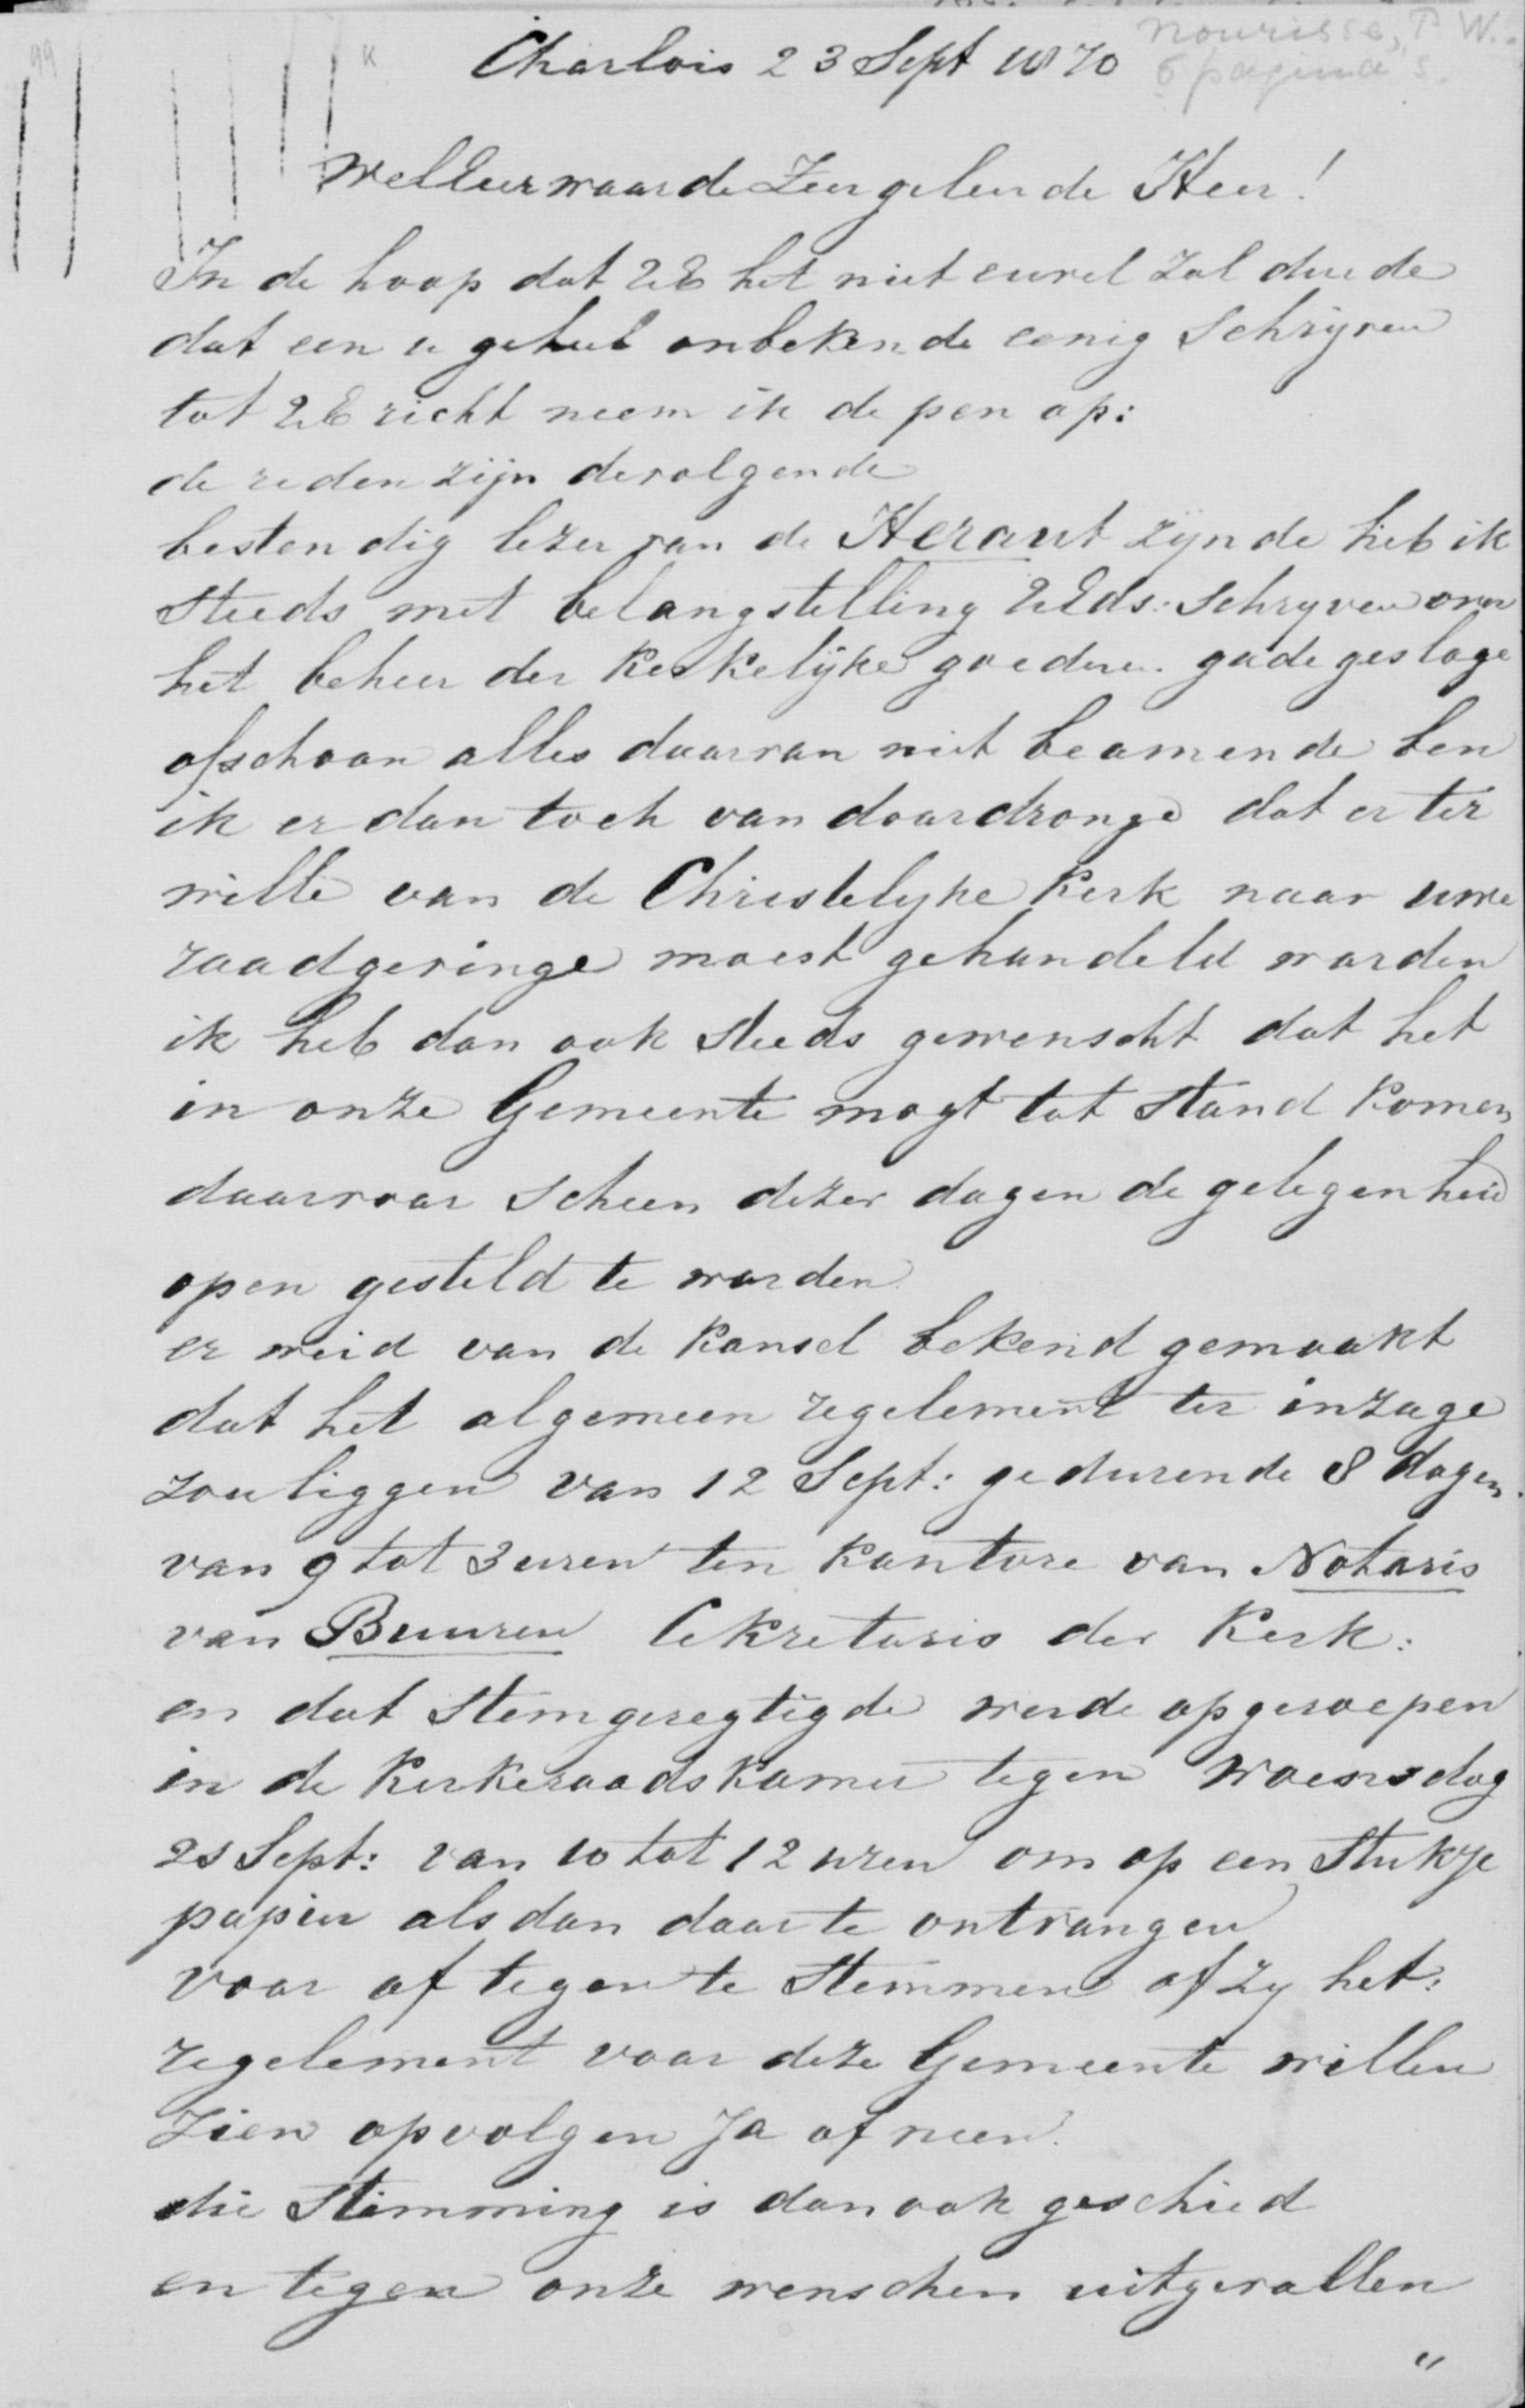 nourisse, P W.
Charlois 23 Sept 1870
6 pagina's.
99
WelEerwaarde Zeergeleerde Heer!
In de hoop dat UE het niet euvel zal duide
dat een u geheel onbekende eenig Schrijven
tot UE richt neem ik de pen op:
de reden zijn de volgende
bestendig lezer van de Heraut zijnde heb ik
steeds met belangstelling UEds: Schryven over
het beheer der Kerkelijke goederen gade geslage
ofschoon alles daarvan niet beamende ben
ik er dan toch van doordronge dat er ter
wille van de Christelyke Kerk naar uwe
raadgevinge moest gehandeld worden
ik heb dan ook steeds gewenscht dat het
in onze Gemeente mogt tot stand komen
daarvoor scheen dezer dagen de gelegenheid
open gesteld te worden
er werd van de Kansel bekend gemaakt
dat het algemeen regelement ter inzage
zou liggen van 12 Sept: gedurende 8 dagen.
van 9 tot 3 uren ten kantore van Notaris
van Buuren Cekretaris der Kerk:
en dat Stemgeregtigde werde opgeroepen
in de Kerkeraadskamer tegen Woensdag
21 Sept: van 10 tot 12 uren om op een Stukje
papier als dan daar te ontvangen
voor of tegen te Stemmen of zy het:
regelement voor deze Gemeente willen
Zien opvolgen Ja of neen.
die Stemming is dan ook geschied
en tegen onze wenschen uitgevallen
"